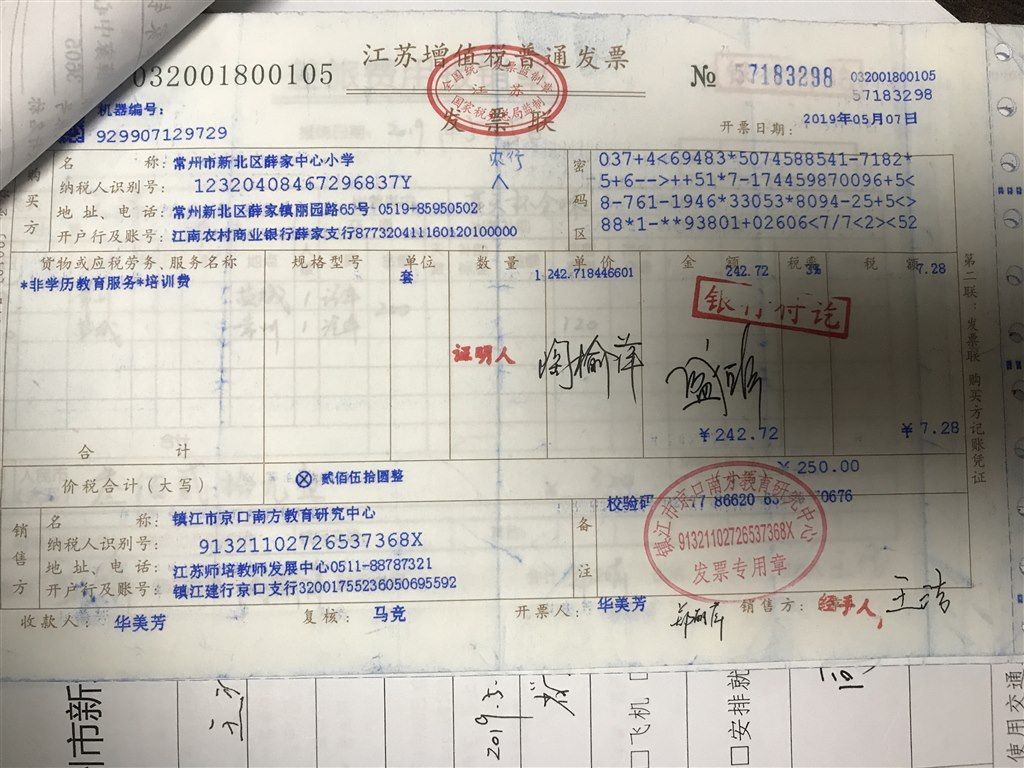 江苏增值税普通发票
发票联
032001800105
№ 57183298
032001800105
57183298
机器编号:
929907129729
开票日期: 2019年05月07日
全国统一发票监制章
江苏
国家税务总局监制
购买方
名 称: 常州市新北区薛家中心小学
农行
纳税人识别号: 12320408467296837Y
地址、电话: 常州新北区薛家镇丽园路65号 0519-85950502
开户行及账号: 江南农村商业银行薛家支行877320411160120100000
密码区
037+4<69483*5074588541-7182*
5+6-->++51*7-174459870096+5<
8-761-1946*33053*8094-25+5<>
88*1-**93801+02606<7/7<2><52
货物或应税劳务、服务名称 规格型号 单位 数量 单价 金额 税率 税额
*非学历教育服务*培训费 套 1 242.718446601 242.72 3% 7.28
银行付讫
证明人
合计 ¥242.72 ¥7.28
价税合计(大写) ⊗ 贰佰伍拾圆整 ¥250.00
销售方
名 称: 镇江市京口南方教育研究中心
纳税人识别号: 91321102726537368X
地址、电话: 江苏师培教师发展中心0511-88787321
开户行及账号: 镇江建行京口支行32001755236050695592
备注
校验码 77 86620 6 0676
镇江市京口南方教育研究中心
91321102726537368X
发票专用章
收款人: 华美芳 复核: 马竞 开票人: 华美芳 销售方:
经手人, 王洁
第二联:发票联 购买方记账凭证
州市新
2019.5.
□飞机
□安排就
使用交通